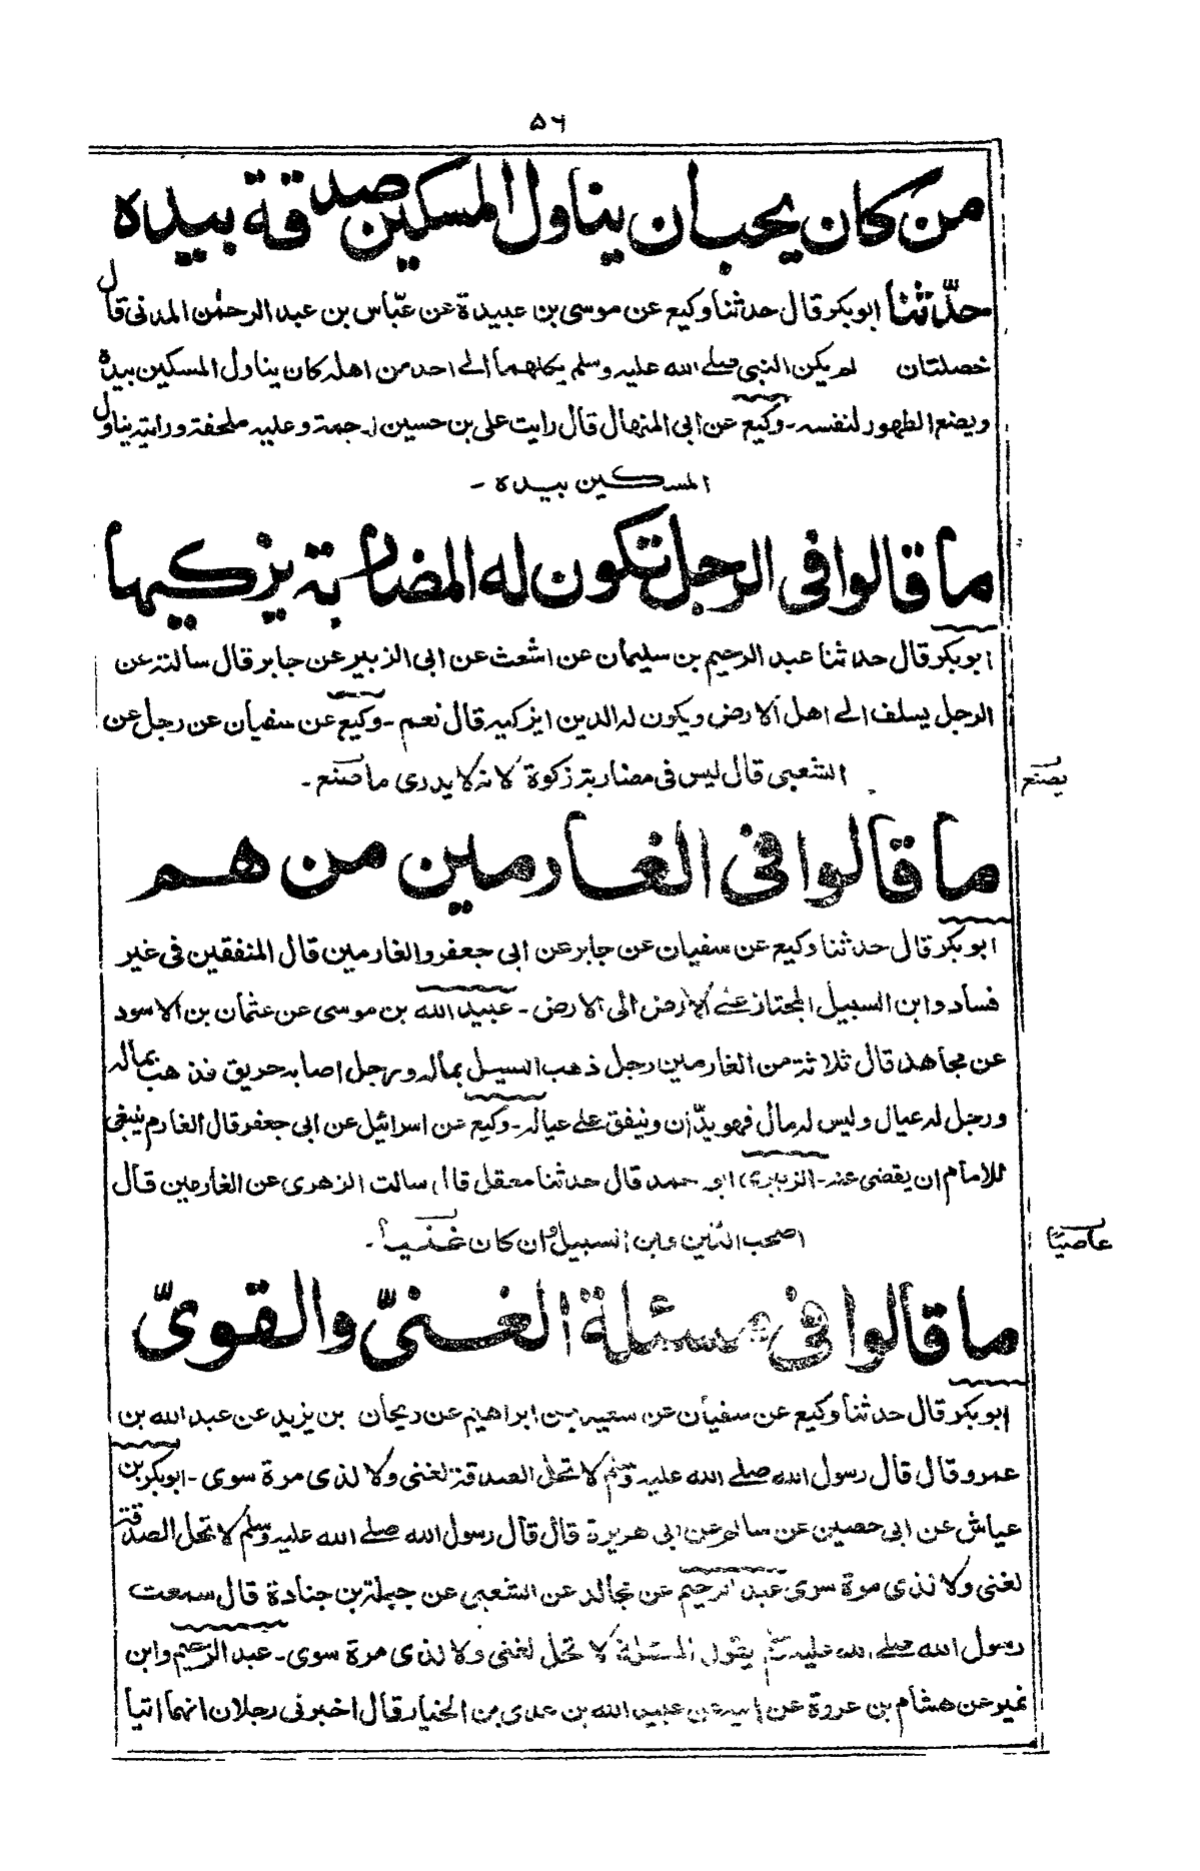 ۵۶
من كان يحب ان يناول المسكين صدقة بيده
حدّثنا ابوبكر قال حدثنا وكيع عن موسى بن عبيدة عن عبّاس بن عبد الرحمٰن المدنى قال
خصلتان لم يكن النبى صلے الله عليه وسلم يكلهما الے احد من اهله كان يناول المسكين بيده
ويضع الطهور لنفسه ـ وكيع عن ابى المنهال قال رايت على بن حسين له جمة وعليه ملحفة ورايته يناول
المسكين بيده ـ
ما قالوا فى الرجل تكون له المضاربة يزكيها
ابوبكر قال حدثنا عبد الرحيم بن سليمان عن اشعث عن ابى الزبير عن جابر قال سالته عن
الرجل يسلف الے اهل الارض ويكون له الدين ايزكيه قال نعم ـ وكيع عن سفيان عن رجل عن
الشعبى قال ليس فى مضاربة زكوة لانه لا يدرى ما صنع ـ
يصنع
ما قالوا فى الغارمين من هم
ابوبكر قال حدثنا وكيع عن سفيان عن جابر عن ابى جعفر والغارمين قال المنفقين فى غير
فساد وابن السبيل المجتاز عنے الارض الى الارض ـ عبيد الله بن موسى عن عثمان بن الاسود
عن مجاهد قال ثلاثة من الغارمين رجل ذهب السيل بماله ورجل اصابه حريق فذهب بماله
ورجل له عيال وليس له مال فهو يدّان وينفق علے عياله ـ وكيع عن اسرائيل عن ابى جعفر قال الغارم ينبغى
للامام ان يقضى عنه ـ الزبيرى ابو حمد قال حدثنا معقل قال سالت الزهرى عن الغارمين قال
اصحب الدين وابن السبيل وان كان غنيا ـ
عاصيًا
ما قالوا فى مسئلة الغنىّ والقوىّ
ابوبكر قال حدثنا وكيع عن سفيان عن سعيد بن ابراهيم عن ريحان بن يزيد عن عبد الله بن
عمرو قال قال رسول الله صلے الله عليه وسلم لا تحل الصدقة لغنى ولا لذى مرة سوى ـ ابوبكر بن
عياش عن ابى حصين عن سالم عن ابى هريرة قال قال رسول الله صلے الله عليه وسلم لا تحل الصدقة
لغنى ولا لذى مرة سوى عبد الرحيم عن مجالد عن الشعبى عن حبلة بن جنادة قال سمعت
رسول الله صلے الله عليه وسلم يقول المسئلة لا تحل لغنى ولا لذى مرة سوى ـ عبد الرحيم وابن
نمير عن هشام بن عروة عن ابيه عن عبيد الله بن عدى بن الخيار قال اخبرنى رجلان انهما اتيا